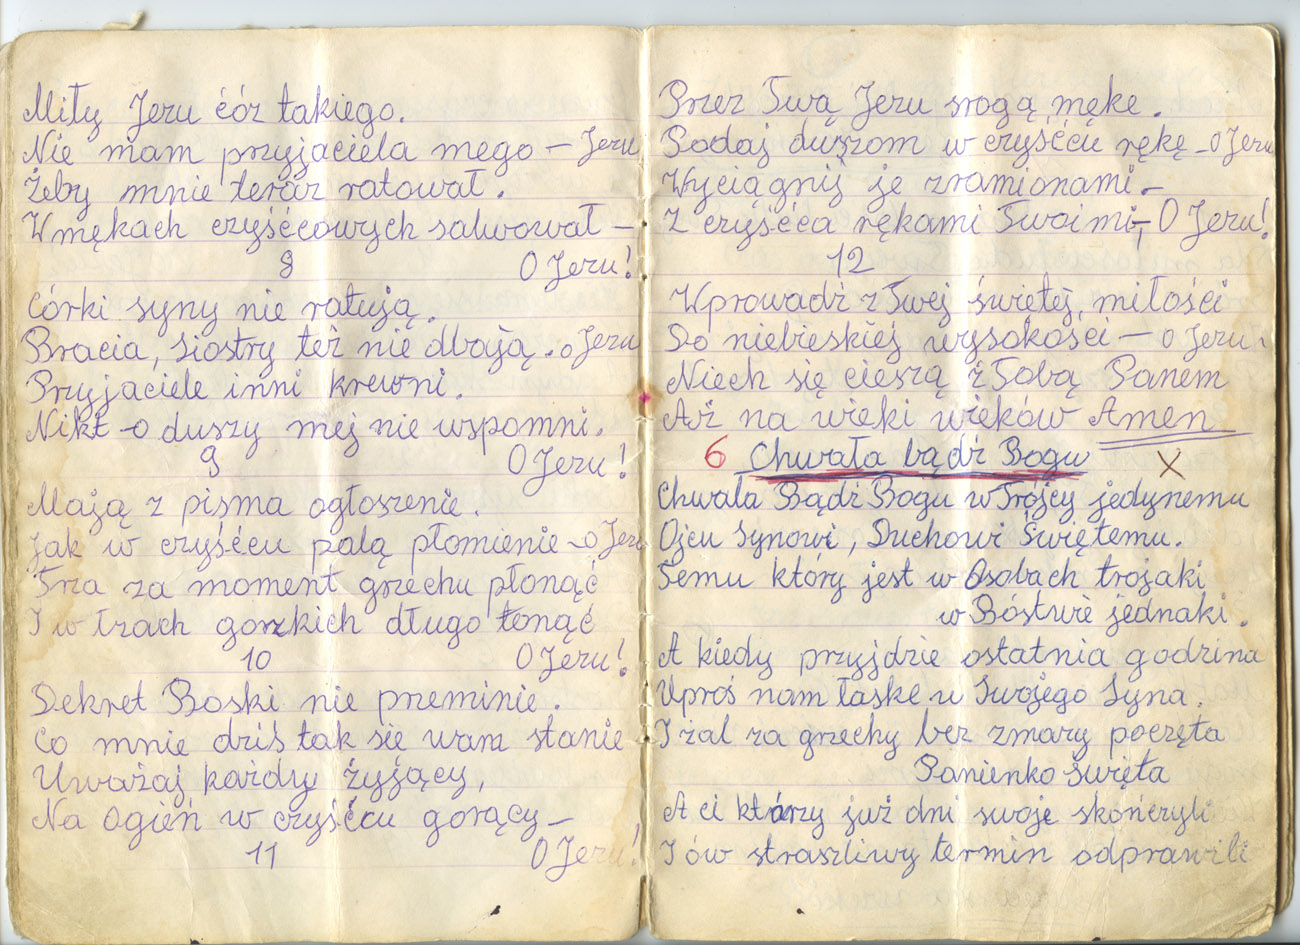 Miły Jezu ćóż takiego.
Nie mam przyjaciela mego – Jezu
Żeby mnie teraz ratował.
W mękach czyśćcowych salwował –
8 O Jezu!
Córki syny nie ratują.
Bracia, siostry też nie dbają. o Jezu
Przyjaciele inni krewni.
Nikt o duszy mej nie wspomni.
9 O Jezu!
Mają z pisma ogłoszenie.
Jak w czyśćcu palą płomienie – o Jezu
Trza za moment grzechu płonąć
I w łzach gorzkich długo tonąć
10 O Jezu!
Dekret Boski nie preminie.
Co mnie dziś tak się wam stanie
Uważaj każdy żyjący,
Na Ogień w czyśćcu gorący –
11 O Jezu!
Przez Twą Jezu srogą mękę.
Podaj duszom w czyśćcu rękę – o Jezu
Wyciągnij je z ramionami –
Z czyśćca rękami Twoimi, – O Jezu!
12
Wprowadź z Twej świętej, miłości
Do niebieskiej wysokości – o Jezu
Niech się cieszą z Tobą Panem
Aż na wieki wieków Amen
6 Chwała bądź Bogu X
Chwała Bądź Bogu w Trójcy jedynemu
Ojcu Synowi, Duchowi Świętemu.
Temu który jest w Osobach trojaki
w Bóstwie jednaki.
A kiedy przyjdzie ostatnia godzina
Uproś nam łaskę u Swojego Syna.
I żal za grzechy bez zmazy poczęta
Panienko święta
A ci którzy już dni swoje skończyli
I ów straszliwy termin odprawili